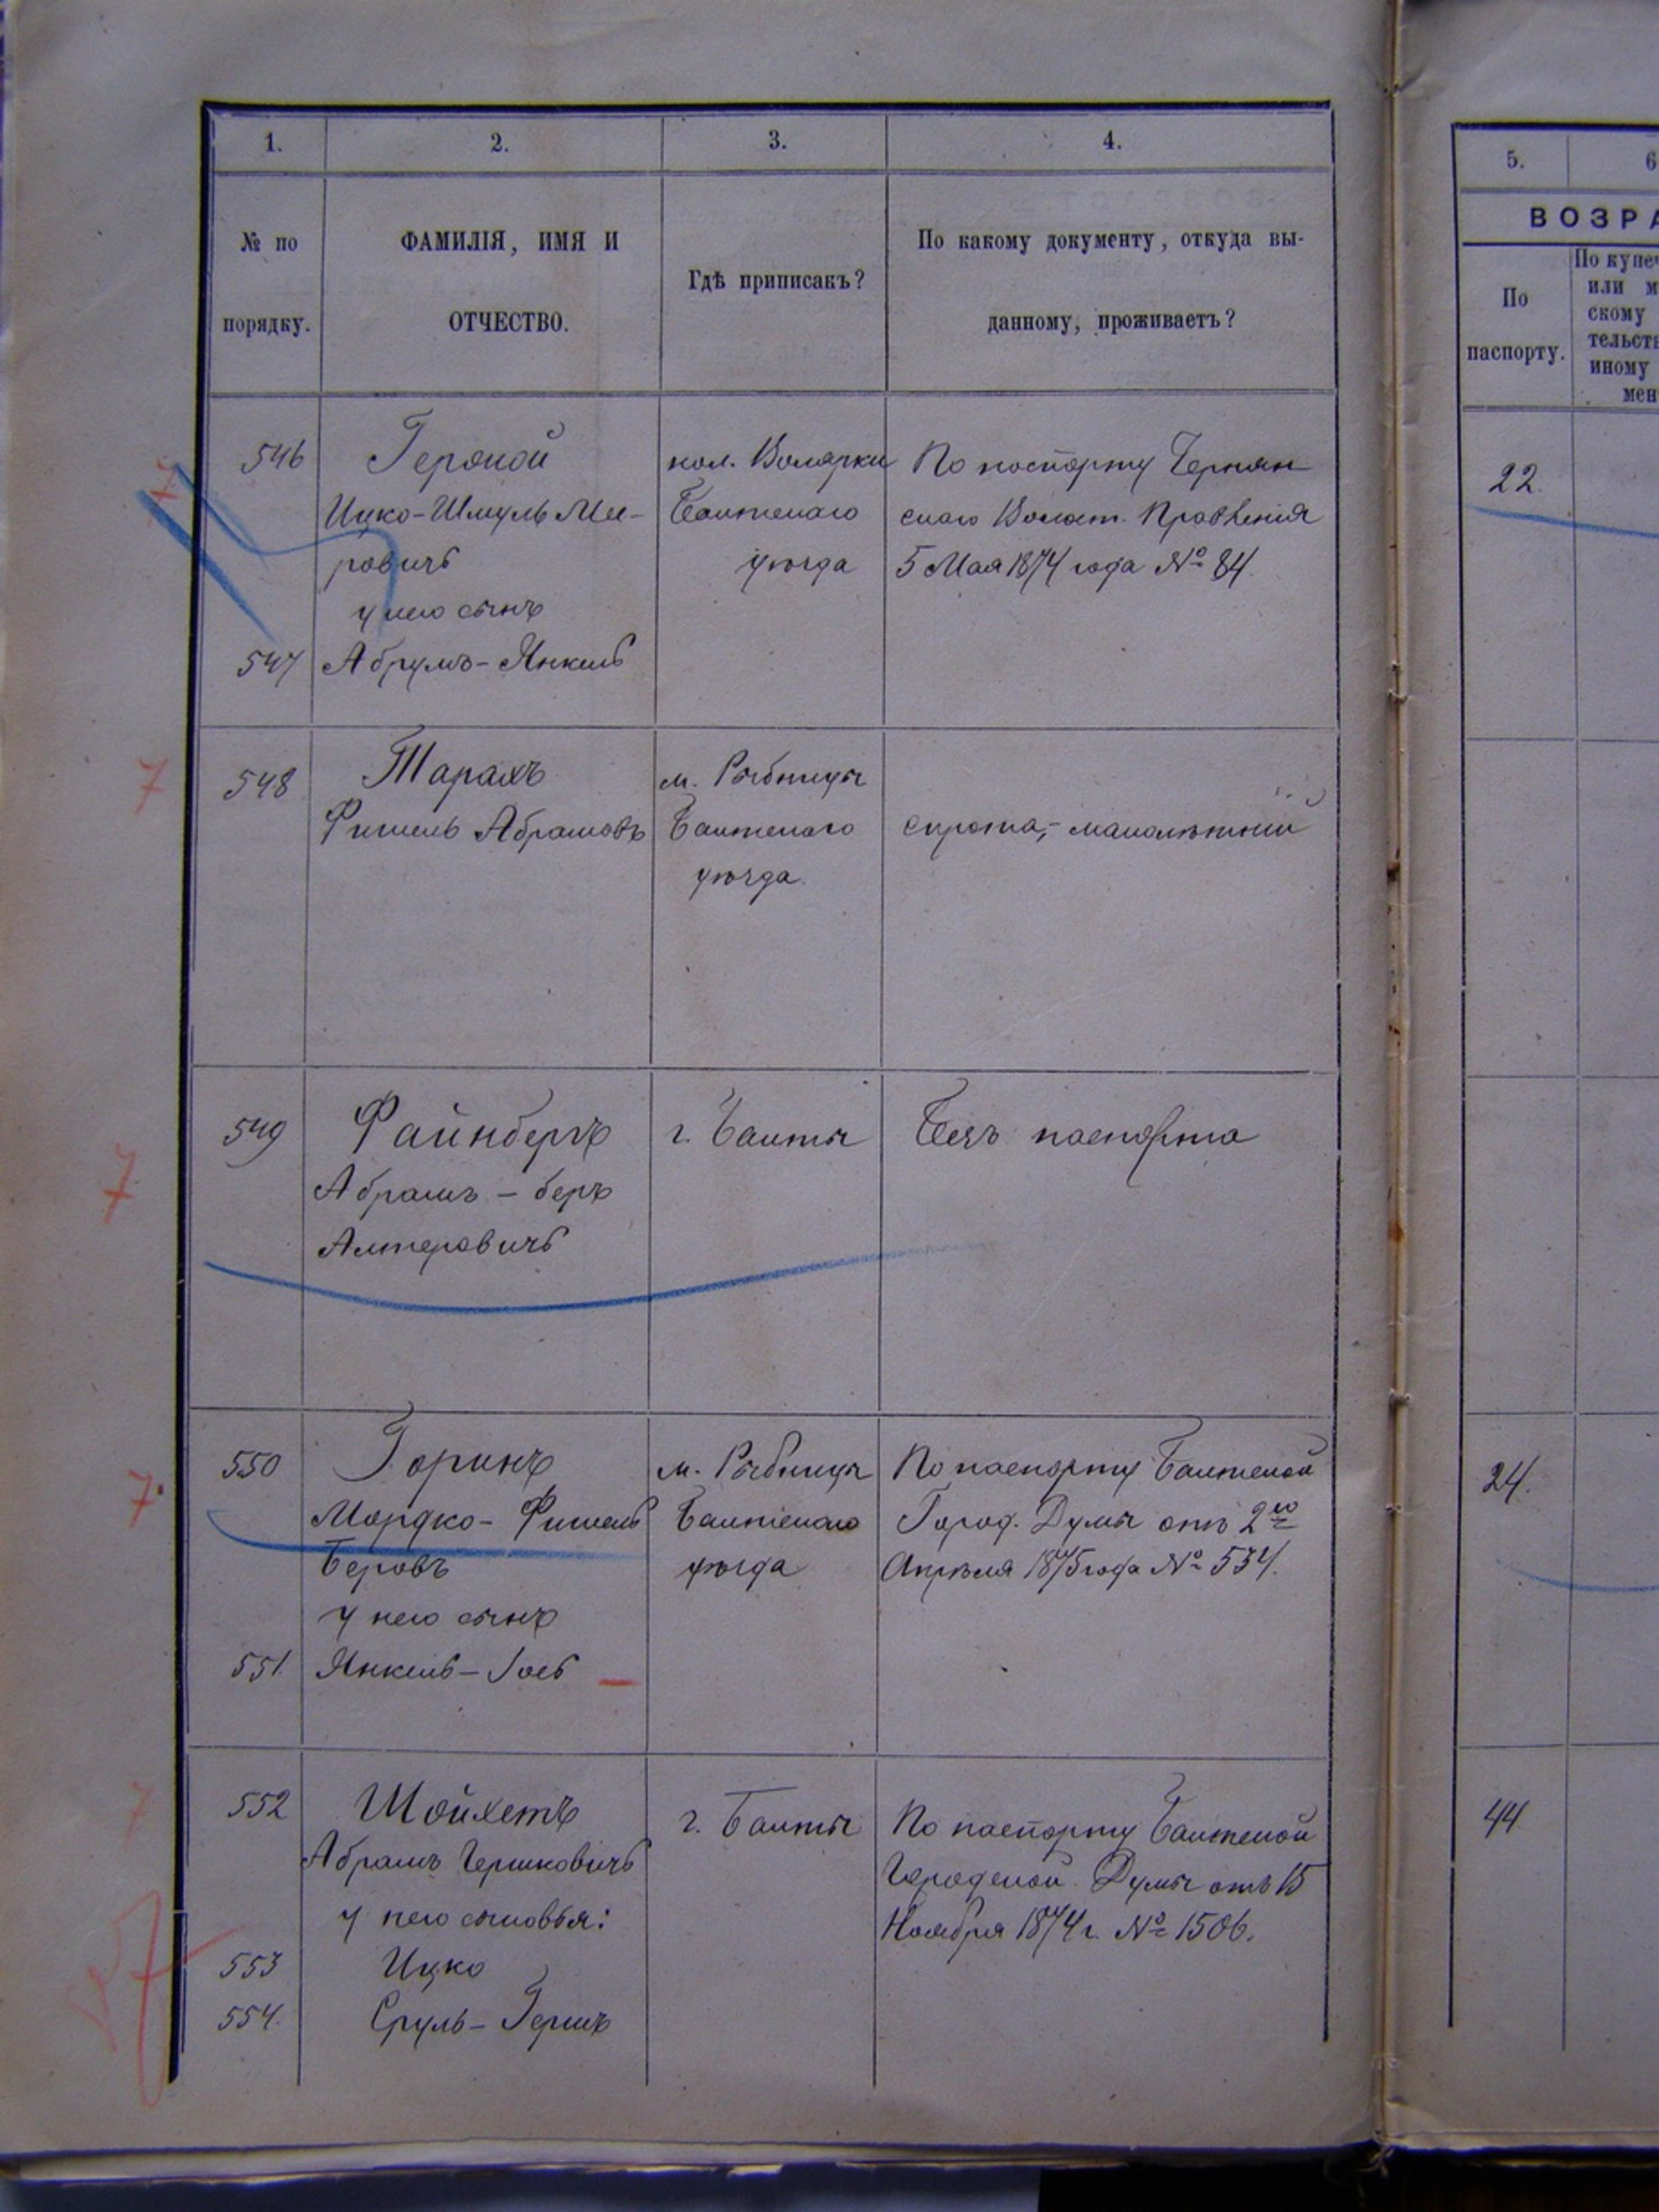 1.
2.
3.
4.
№ по
порядку.
ФАМИЛІЯ, ИМЯ И
ОТЧЕСТВО.
Гдѣ приписакъ?
По какому документу, откуда вы-
данному, проживаетъ?
546
Ицко-Шмуль Мее-
ровичъ
у него сынъ
кол.
Балтскаго
уѣзда
По паспорту
скаго Волост. Правленія
5 Мая 1874 года № 84.
547
Абрумъ-Янкель
548
Тарахъ
Фишель Абрамовъ
м. Рыбницы
Балтскаго
уѣзда.
сирота,- малолѣтній
549
Файнбергъ
Абрамъ - Беръ
Алтеровичъ
г. Балты
Безъ паспорта
550
Горинъ
Мордко- Фишель
Беровъ
у него сынъ
м. Рыбницы
Балтскаго
уѣзда
По паспорту Балтской
Город. Думы отъ 2го
Апрѣля 1875 года № 534.
551.
Янкель-Іось
552
Шойхетъ
Абрамъ Гершковичъ
у него сыновья:
г. Балты
По паспорту Балтской
Городской Думы отъ 15
Ноября 1874 г. № 1506.
553
Ицко
554.
Сруль-Гершъ
7
7
7.
7
5.
6
ВОЗРА
По
паспорту.
По купеч
или м
скому
тельств
иному
мен
22.
24.
44